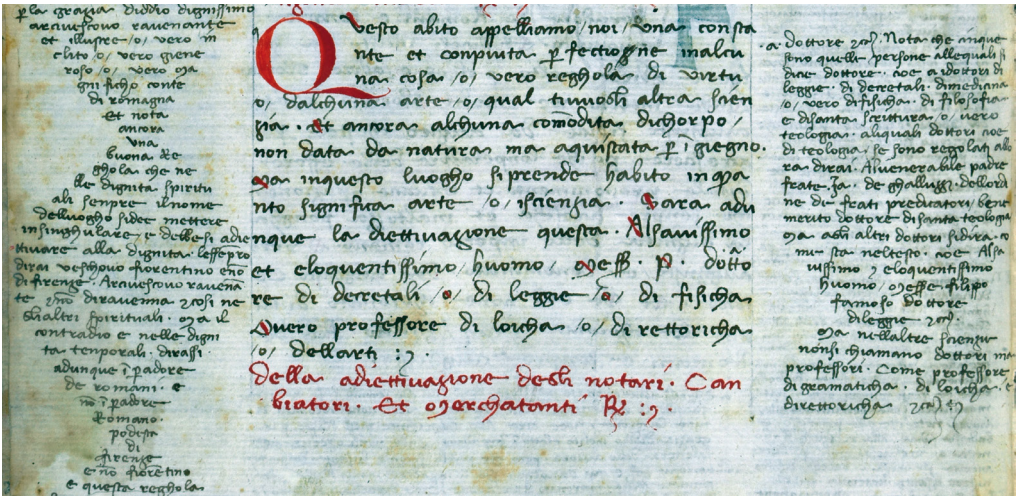 p la gratia diddio dignissimo
arcivescovo ravenante
et illustre /o/ vero in
clito /o/ vero giene
roso /o/ vero ma
gnificho conte
di romagna
Et nota
ancora
una
buona Re
ghola che ne
lle dignita spiritu
ali senpre il nome
delluogho sidee mettere
insinghulare, e dellesi adie
ttivare alla dignita. lessepro
dirai veschovo fiorentino e nō
di firenze. Arcivescovo ravenā
te 7 nō diravenna 7 cosi ne
gli altri spirituali. Ma il
contradio e nelle digni
ta tenporali. dirassi.
adunque īpadore
de romani. e
nō īpadore
Romano.
podesta
di
firenze
e nō fiorentino
e questa reghola
Questo abito appelliamo /noi/ una consta
nte et conpiuta pfectiogne inalcu
na cosa /o/ vero reghola di virtu
/o/ dalchuna arte /o/ qual tivuogli altra scien
zia. et ancora alchuna comodita dichorpo /
non data da natura ma aquistata p īgiegno.
Ma inquesto luogho siprende habito inqua
nto significa arte /o/ iscienzia. Sara adu
nque la diettivazione questa. Alsavissimo
et eloquentissimo / huomo /. Mess. P. dotto
re di decretali /o/ di leggie /o/ di fisicha
Overo professore di loicha /o/ di rettoricha
/o/ dellarti :7.
della adiettivazione degli notari. Can
biatori. Et Merchatanti R :7.
a. dottore 7c. Nota che cinque
sono quelle / persone allequali si
dice dottore. cioe a idottori di
leggie. di decretali. dimedicina
/o/ vero di fisicha. di filosofia
e disanta scrittura /o/ vero
teologia. aliquali dottori cioe
di teologia. se sono regolati allo
ra dirai. Alvenerabile padre
frate. Ja. de ghalluzzi. dellordi
ne di frati predicatori / bene
merito dottore disanta teologia
Ma agli altri dottori sidira. co
me sta neltesto. cioe Alsa
vissimo 7 eloquentissimo
huomo / messe filippo
famoso dottore
dileggie 7c.
Ma nellaltre scienzie
nonsi chiamano dottori ma
professori. Come professore
di gramaticha. di loicha. e
direttoricha 7c :7